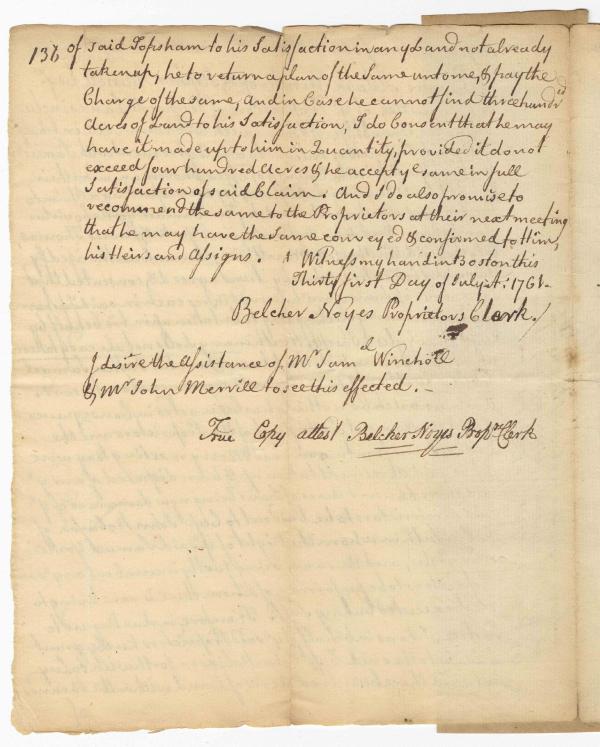 136 of said Topsham to his Satisfaction in any Land not already
taken up, he to return a plan of the Same unto me, & pay the
Charge of the same, And in Case he cannot find three hundrd
Acres of Land to his Satisfaction, I do Consent that he may
have it made up to him in Quantity, provided it do not
exceed four hundred Acres & he accept ye same in full
Satisfaction of said Claim. And I do also promise to
recommend the same to the Proprietors at their next meeting
that he may have the Same conveyed & confirmed to Him,
his Heirs and Assigns. Witness my hand in Boston this
Thirty first Day of July A: 1761.
Belcher Noyes Proprietors Clerk.
I desire the Assistance of Mr Samel Winchell
& Mr John Merrill to see this effected. –
True Copy attest Belcher Noyes Propre Clerk